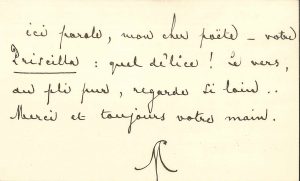 ici parole, mon cher poëte – votre
Priscilla : quel délice ! Le vers,
au pli pur, regarde si loin..
Merci et toujours votre main.
SM